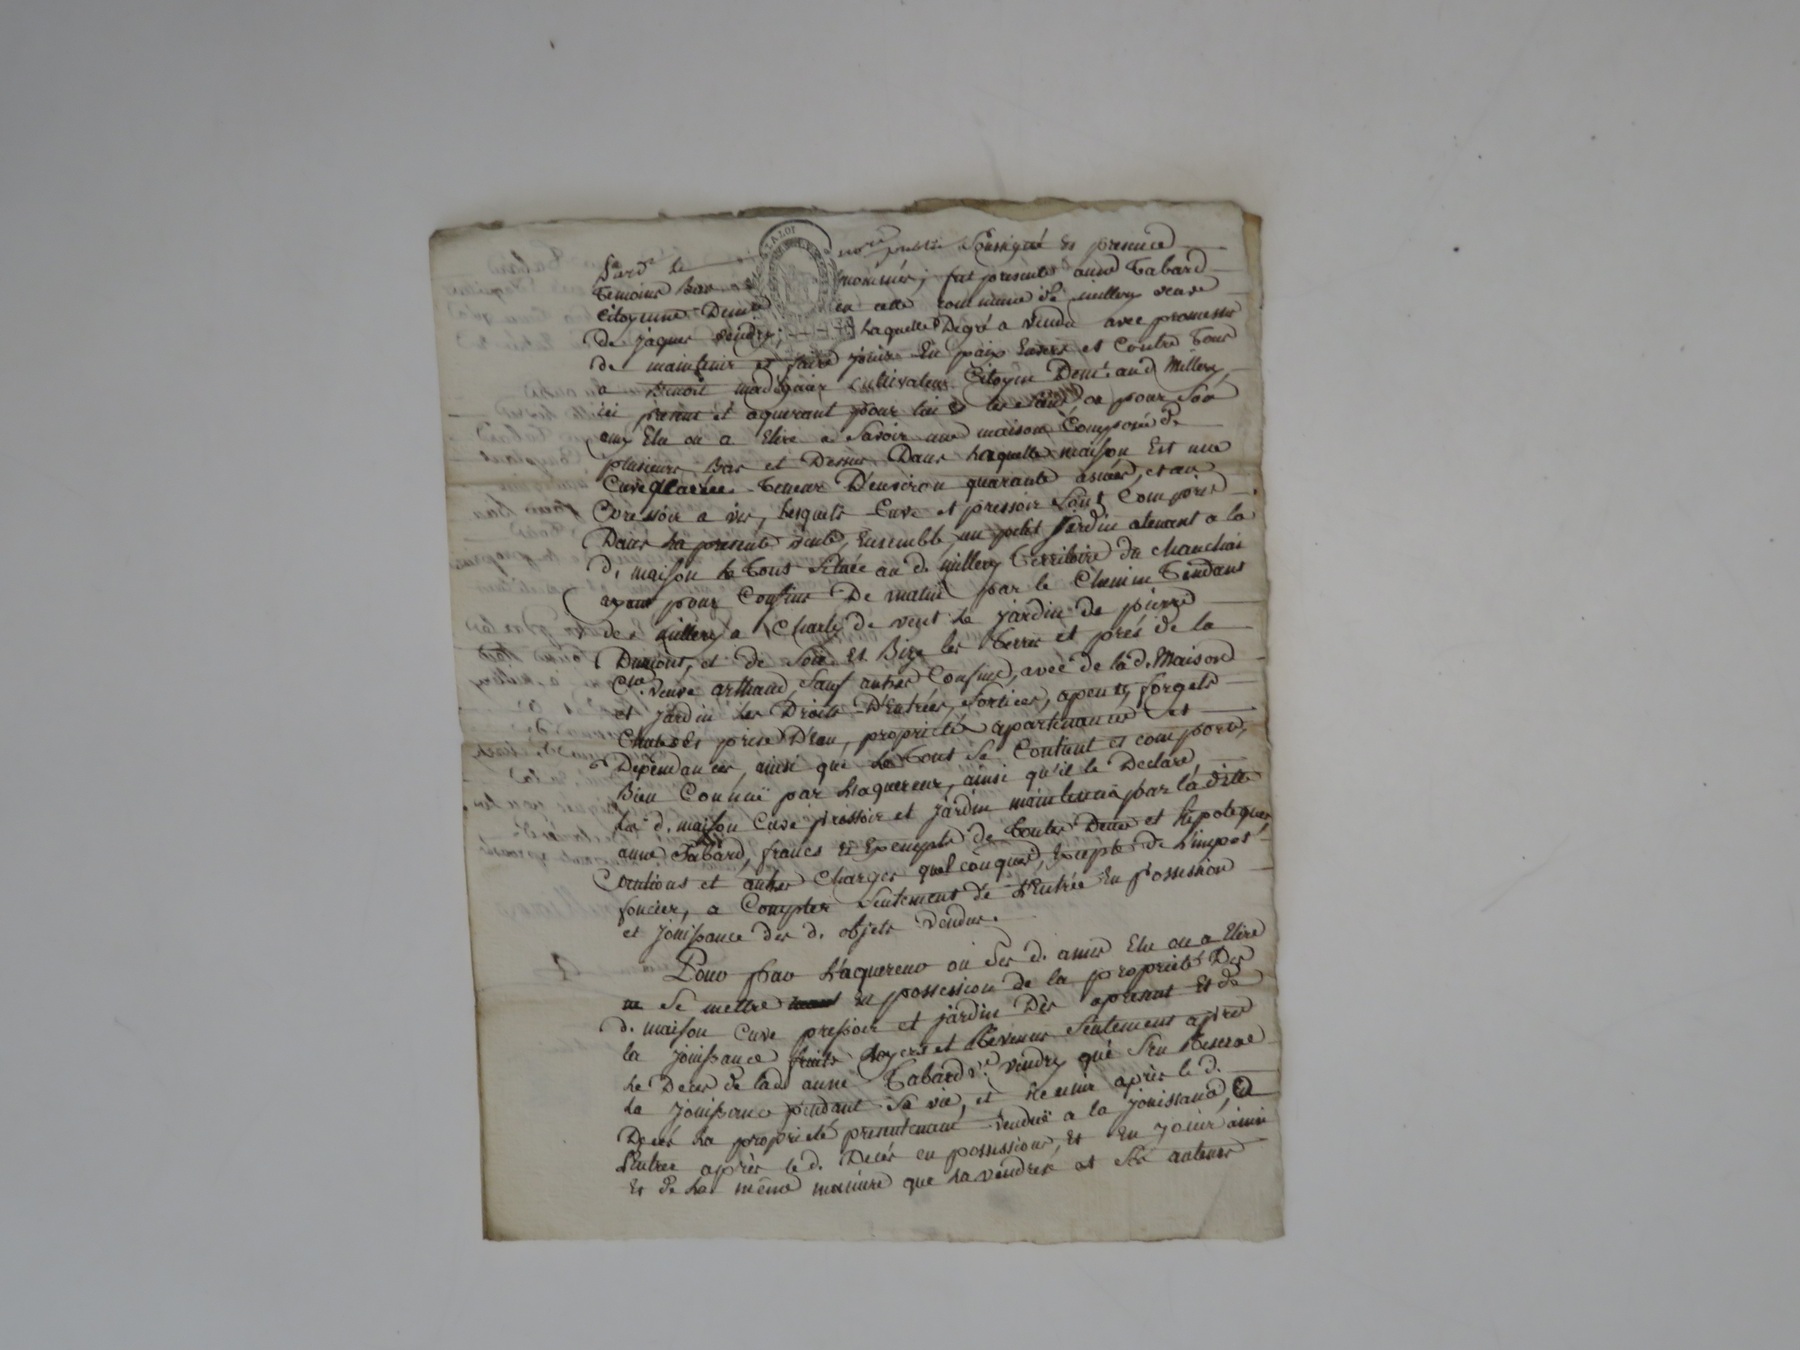 Pard.t le no.re public soussigné et presence
Temoins bas nommés, fut presente anne Tabard
Citoyenne Demte en cette commune de millery veuve
De jaques vendry; Laquelle De gré a vendu avec promesse
de maintenir et faire jouir En paix Envers et Contre Tous
a Benoit cultivateur Citoyen Demt. aud Millery,
ici présent et aquerant pour lui et les siens ou pour son
amy Elu ou a Elire a savoir une maison Composée de
plusieurs Bas et Dessus, Dans Laquelle maison Est une
Cuve Teneur D'environ quarante asnées, et un
Pressoir a vis, lesquels Cuve et pressoir sont Compris
Dans La présente vente, Ensemble un petit jardin atenant a la
d. maison le Tout située au d. millery Territoire du
ayant pour Confins De matin par le Chemin Tendant
de Millery a Charly de vent le jardin de pierre
Dumont, et de Soir et Bize les Terres et prés de la
C.ne veuve arthaud, sauf autres Confins, avec de la d. Maison
et jardin les Droits D'Entrées, sorties, forgets
Chutes et prise D'eau, propriété apartenances et
Dépendances, ainsi que le Tout se Contient et comporte,
Bien Connuë par L'aquereur, ainsi qu'il le Declare,
La d. maison Cuve pressoir et jardin maintenus par la ditte
anne Tabard, francs et Exempts de Toutes Dettes et hipoteques,
et autres Charges quelconques, Excepté de L'impot
foncier, a Compter seulement de L'entrée En possession
et jouissance des d. objets vendus.
Pour par L'aquereur ou ses d. amis Elu ou a Elire
se mettre en possession de la propriété Des
d. maison cuve pressoir et jardin Dès apresent Et de
la jouissance fruits loyers et Revenus seulement après
le Decès de lad anne Tabard ve. vendry qui s'en Reserve
La jouissance pendant sa vie, et Reunir après le d.
Decès La propriété presentement venduë a la jouissance,
L'entrée après le d. Decès en possession, et En jouir ainsi
Et de La même maniere que La vendresse et ses auteurs
LA LOI